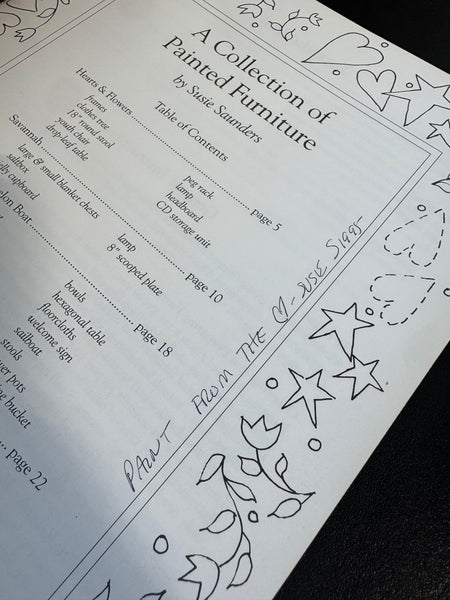 A Collection of
Painted Furniture
by Susie Saunders
Table of Contents
Hearts & Flowers page 5
frames
clothes tree
18" round stool
youth chair
drop-leaf table
peg rack
lamp
headboard
CD storage unit
Savannah page 10
large & small blanket chests
saltbox
cupboard
lamp
8" scooped plate
Boat page 18
bowls
hexagonal table
floorcloths
welcome sign
sailboat
stools
pots
bucket
page 22
PAINT FROM THE ♡ - SUSIE S 1995